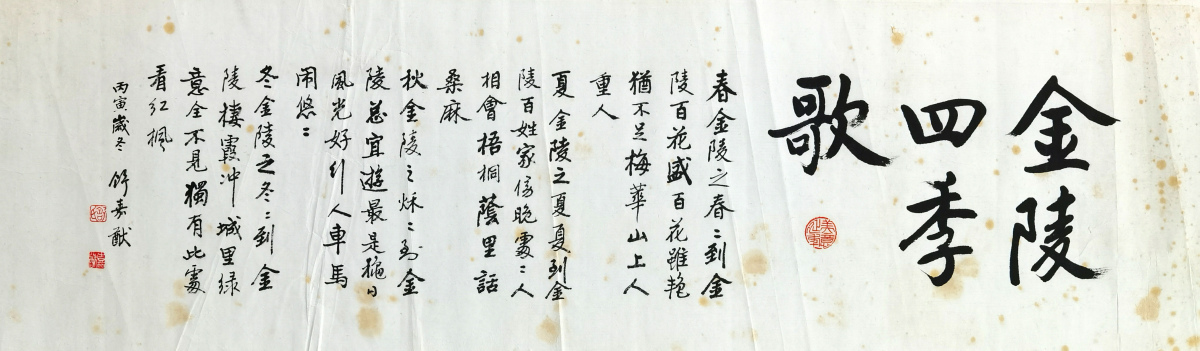 金陵
四季
歌
春金陵之春〻到金
陵百花盛百花雖艳
猶不足梅華山上人
重人
夏金陵之夏夏到金
陵百姓家傍晚處〻人
相會梧桐蔭里話
桑麻
秋金陵之秌〻到金
陵宜遊最是穐日
風光好引人車馬
闹悠〻
冬金陵之冬〻到金
陵棲霞冲城里绿
意全不見獨有此處
看红楓
丙寅歲冬 舒嘉猷